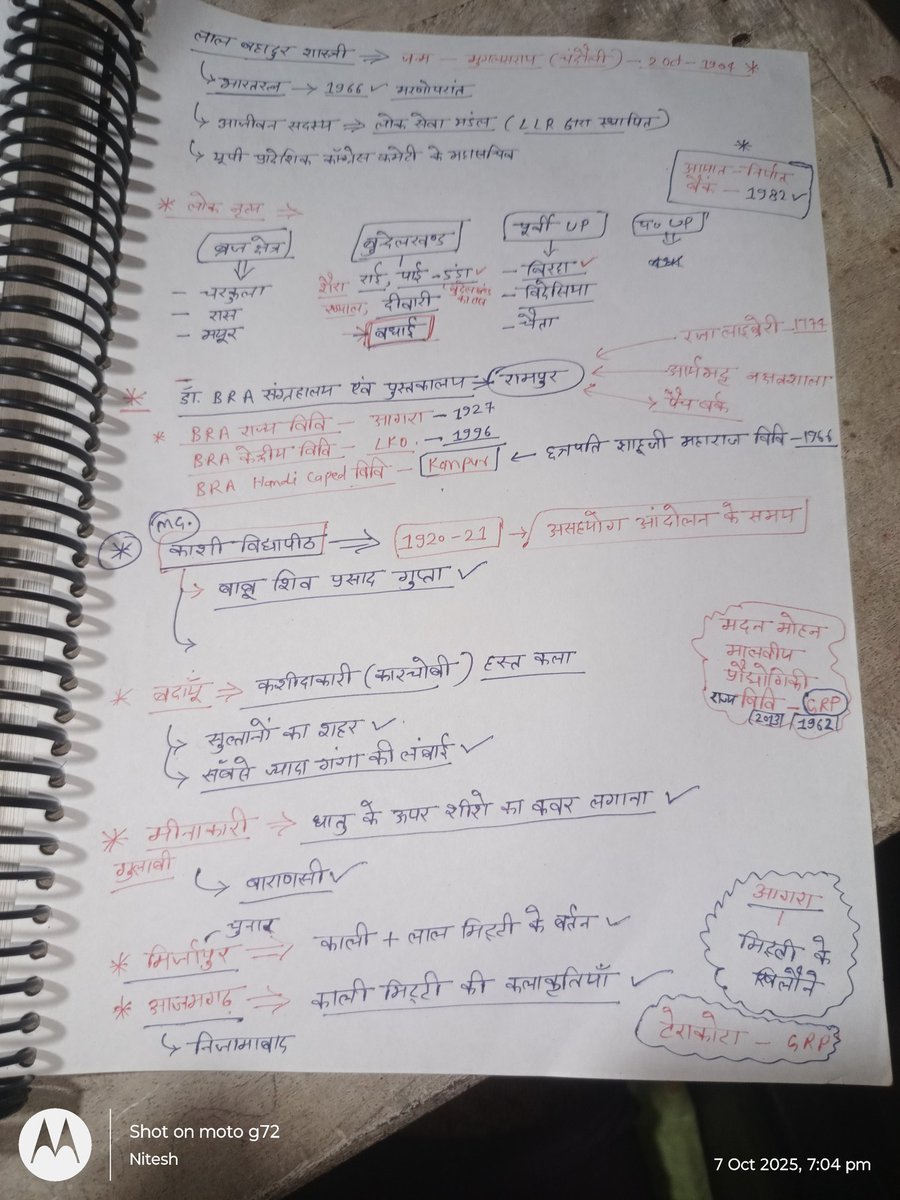 लाल बहादुर शास्त्री ⇒ जन्म - मुगलसराय (चंदौली) - 2 Oct - 1904 *
भारतरत्न → 1966 ✓ मरणोपरांत
आजीवन सदस्य ⇒ लोक सेवा मंडल (LLR द्वारा स्थापित)
यूपी प्रादेशिक काँग्रेस कमेटी के महासचिव
*
आयात-निर्यात
बैंक - 1982 ✓
* लोक नृत्य ⇒
ब्रज क्षेत्र
- चरकुला
- रास
- मयूर
बुन्देलखण्ड
शैरा राई, पाई-डंडा ✓
ख्याल, दीवारी
→ बधाई
पूर्वी UP
- बिरहा ✓
- विदेसिया
- चैता
प० UP
* डॉ. BRA संग्रहालय एवं पुस्तकालय → रामपुर
रजा लाइब्रेरी - 1774
आर्यभट्ट नक्षत्रशाला
पैच वर्क
* BRA राज्य विवि - आगरा - 1927
BRA केंद्रीय विवि - LKO. → 1996
BRA Handi Caped विवि - Kanpur ← छत्रपति शाहूजी महाराज विवि - 1966
MG.
* काशी विद्यापीठ ⇒ 1920-21 → असहयोग आंदोलन के समय
बाबू शिव प्रसाद गुप्ता ✓
मदन मोहन
मालवीय
प्रौद्योगिकी
राज्य विवि - GRP
2013 / 1962
* बदायूँ ⇒ कशीदाकारी (कारचोबी) हस्त कला
सुल्तानों का शहर ✓
सबसे ज्यादा गंगा की लंबाई ✓
* मीनाकारी ⇒ धातु के ऊपर शीशे का कवर लगाना ✓
गुलाबी
वाराणसी ✓
चुनार
* मिर्जापुर ⇒ काली + लाल मिट्टी के बर्तन ✓
* आजमगढ़ ⇒ काली मिट्टी की कलाकृतियाँ ✓
निजामाबाद
आगरा
मिट्टी के
खिलौने
टेराकोटा - GRP
Shot on moto g72
Nitesh
7 Oct 2025, 7:04 pm